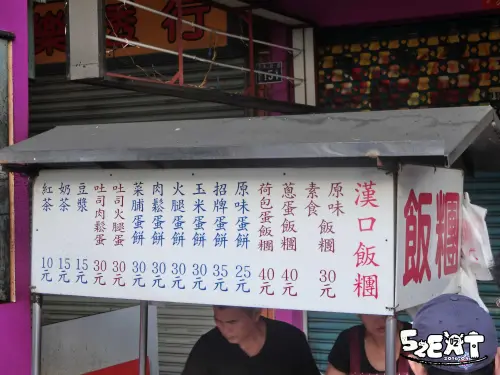 行
漢口飯糰
原味
素食
飯糰
30元
蔥蛋飯糰 40元
荷包蛋飯糰 40元
原味蛋餅 25元
招牌蛋餅 35元
玉米蛋餅 30元
火腿蛋餅 30元
肉鬆蛋餅 30元
菜脯蛋餅 30元
吐司火腿蛋 30元
吐司肉鬆蛋 30元
豆漿 15元
奶茶 15元
紅茶 10元
飯糰
52EAT